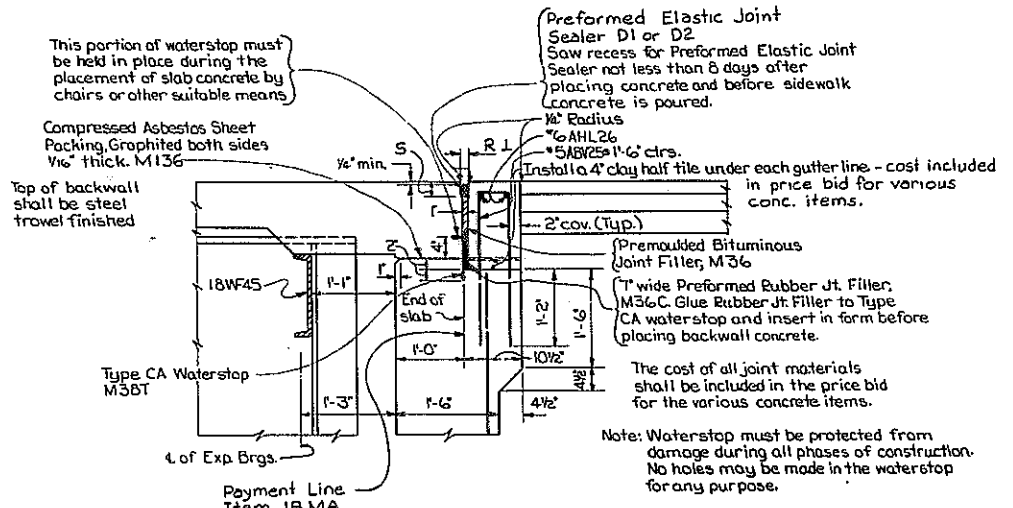 This portion of waterstop must
be held in place during the
placement of slab concrete by
chairs or other suitable means
Preformed Elastic Joint
Sealer D1 or D2
Saw recess for Preformed Elastic Joint
Sealer not less than 8 days after
placing concrete and before sidewalk
concrete is poured.
Compressed Asbestos Sheet
Packing, Graphited both sides
1/16" thick. M136
1/4" min.
S
R
1/4" Radius
#6AHL26
#5ABV25@1'-6" ctrs.
Install a 4" clay half tile under each gutter line - cost included
in price bid for various
conc. items.
Top of backwall
shall be steel
trowel finished
2" cov. (Typ.)
Premoulded Bituminous
Joint Filler, M36
4"
2"
1"
1"
18WF45
1'-1"
End of
slab
1" wide Preformed Rubber Jt. Filler,
M36C. Glue Rubber Jt. Filler to Type
CA waterstop and insert in form before
placing backwall concrete.
1'-2"
1'-6"
1'-0"
10 1/2"
4 1/2"
Type CA Waterstop
M38T
1'-3"
1'-6"
4 1/2"
The cost of all joint materials
shall be included in the price bid
for the various concrete items.
℄ of Exp. Brgs.
Note: Waterstop must be protected from
damage during all phases of construction.
No holes may be made in the waterstop
for any purpose.
Payment Line
Item 18 MA